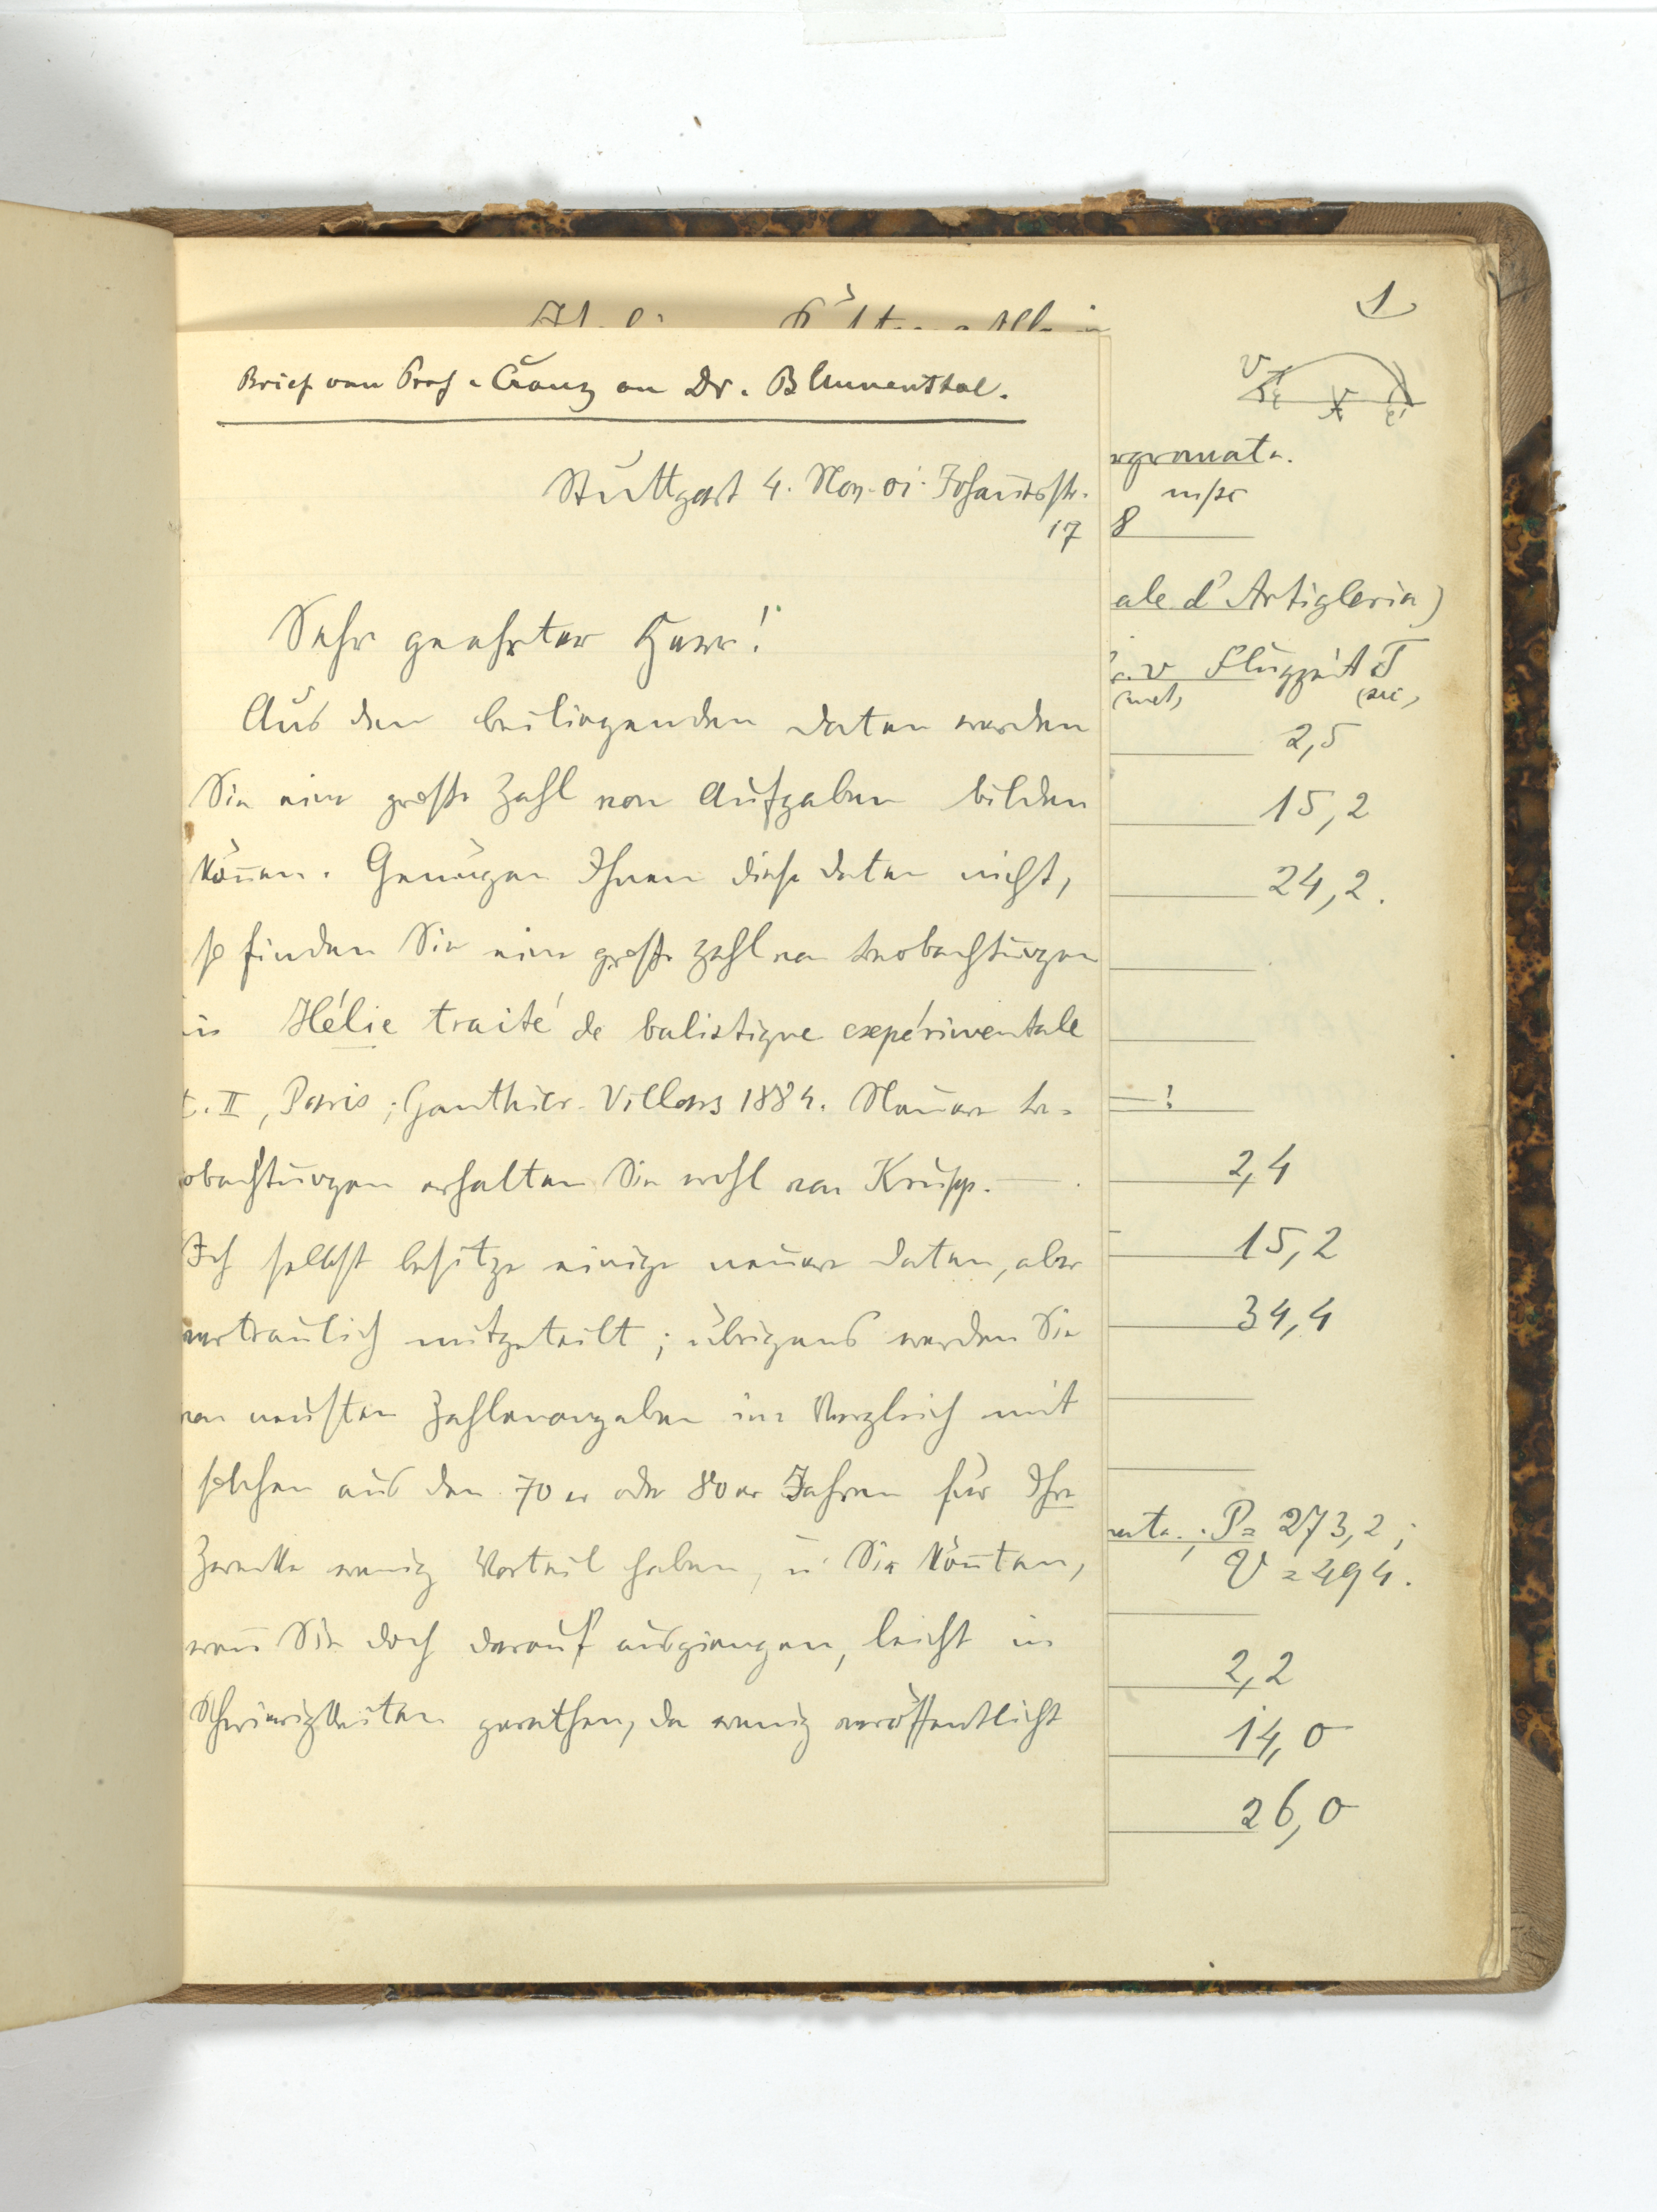 Brief von Prof. Cranz an Dr. Blumenthal.
Stuttgart 4. Nov. 01. Johannesstr.
17
Sehr geehrter Herr!
Aus den beiliegenden Daten werden
Sie eine große Zahl von Aufgaben bilden
können. Genügen Ihnen diese Daten nicht,
so finden Sie eine große Zahl von Beobachtungen
in Hélie traité de balistique expérimentale
t. II, Paris; Gauthier-Villars 1884. Neuere Be-
obachtungen erhalten Sie wohl von Krupp. —
Ich selbst besitze einige neuere Daten, aber
vertraulich mitgeteilt; übrigens werden Sie
von neusten Zahlenangaben im Vergleich mit
solchen aus den 70er oder 80er Jahren für Ihre
Zwecke wenig Vorteil haben, u. Sie könnten,
wenn Sie doch darauf ausgiengen, leicht in
Schwierigkeiten gerathen, da wenig veröffentlicht
1
V
X
m/sc
8
ale d'Artigleria)
v Flugzeit T
(met) (sec)
2,5
15,2
24,2.
— !
2,4
15,2
34,4
P = 273,2;
V = 494.
2,2
14,0
26,0